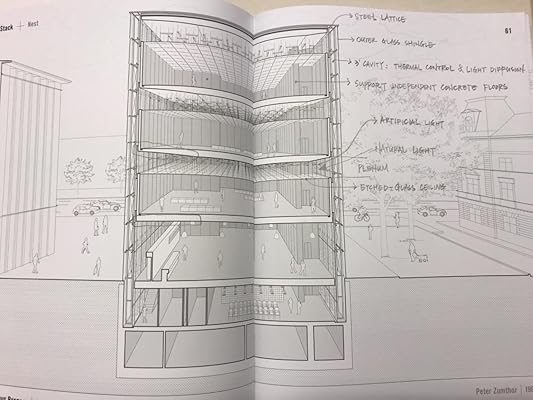 Stack + Nest
61
→ STEEL LATTICE
→ OUTER GLASS SHINGLE
→ 3' CAVITY: THERMAL CONTROL & LIGHT DIFFUSION
→ SUPPORT INDEPENDENT CONCRETE FLOORS
→ ARTIFICIAL LIGHT
NATURAL LIGHT
PLENUM
→ ETCHED-GLASS CEILING
Peter Zumthor